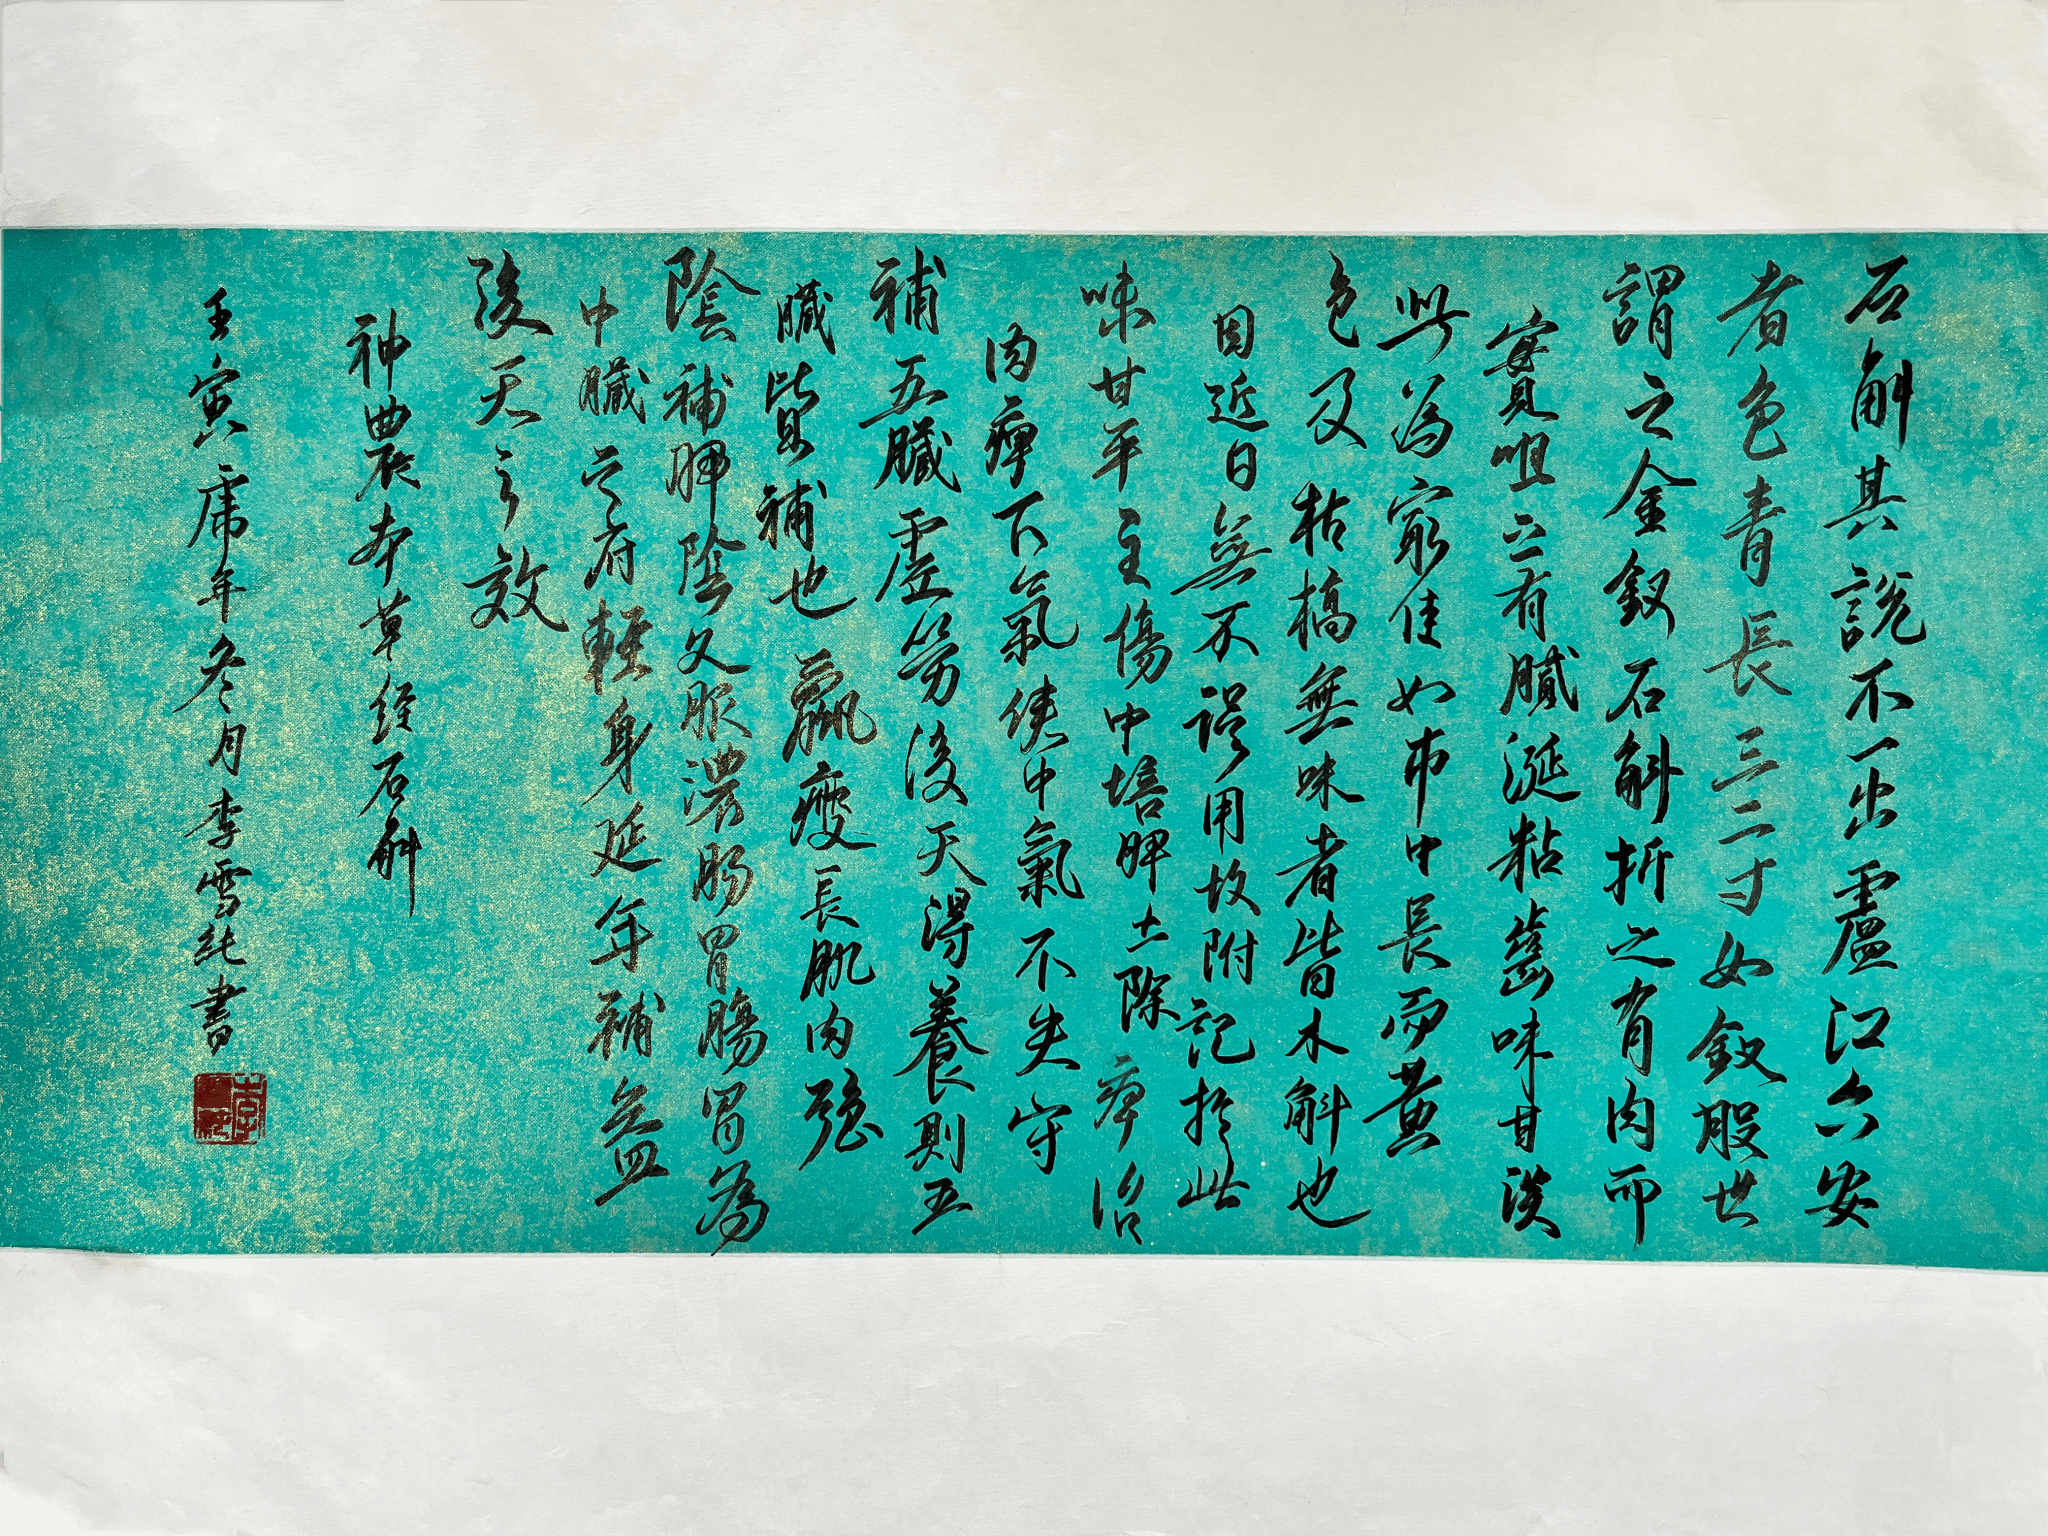 石斛其說不一出廬江六安
者色青長三二寸如釵股世
謂之金釵石斛折之有肉而
實咀之有膩涎粘齒味甘淡
此為最佳如市中長而黃
色及枯槁無味者皆木斛也
因近日無不誤用故附記於此
味甘平主傷中培脾土除痺治
肉痺下氣使中氣不失守
補五臟虛勞後天得養則五
臟皆補也羸瘦長肌肉強
陰補脾陰久服濃腸胃腸胃為
中臟之府輕身延年補益
後天之效
神農本草經石斛
壬寅虎年冬月李雪純書